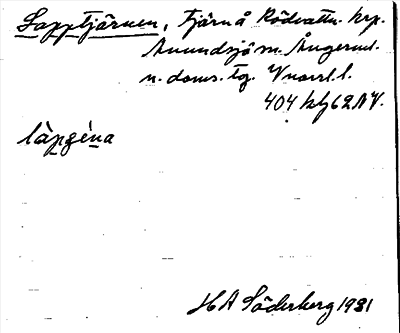 Lapptjärnen, tjärn å Rödvattn. krp.
Anundsjö sn. Ångerml.
n. doms. tg. Vnorrl. l.
404 klg 62 NV.
làpgèna
HA Söderberg 1931